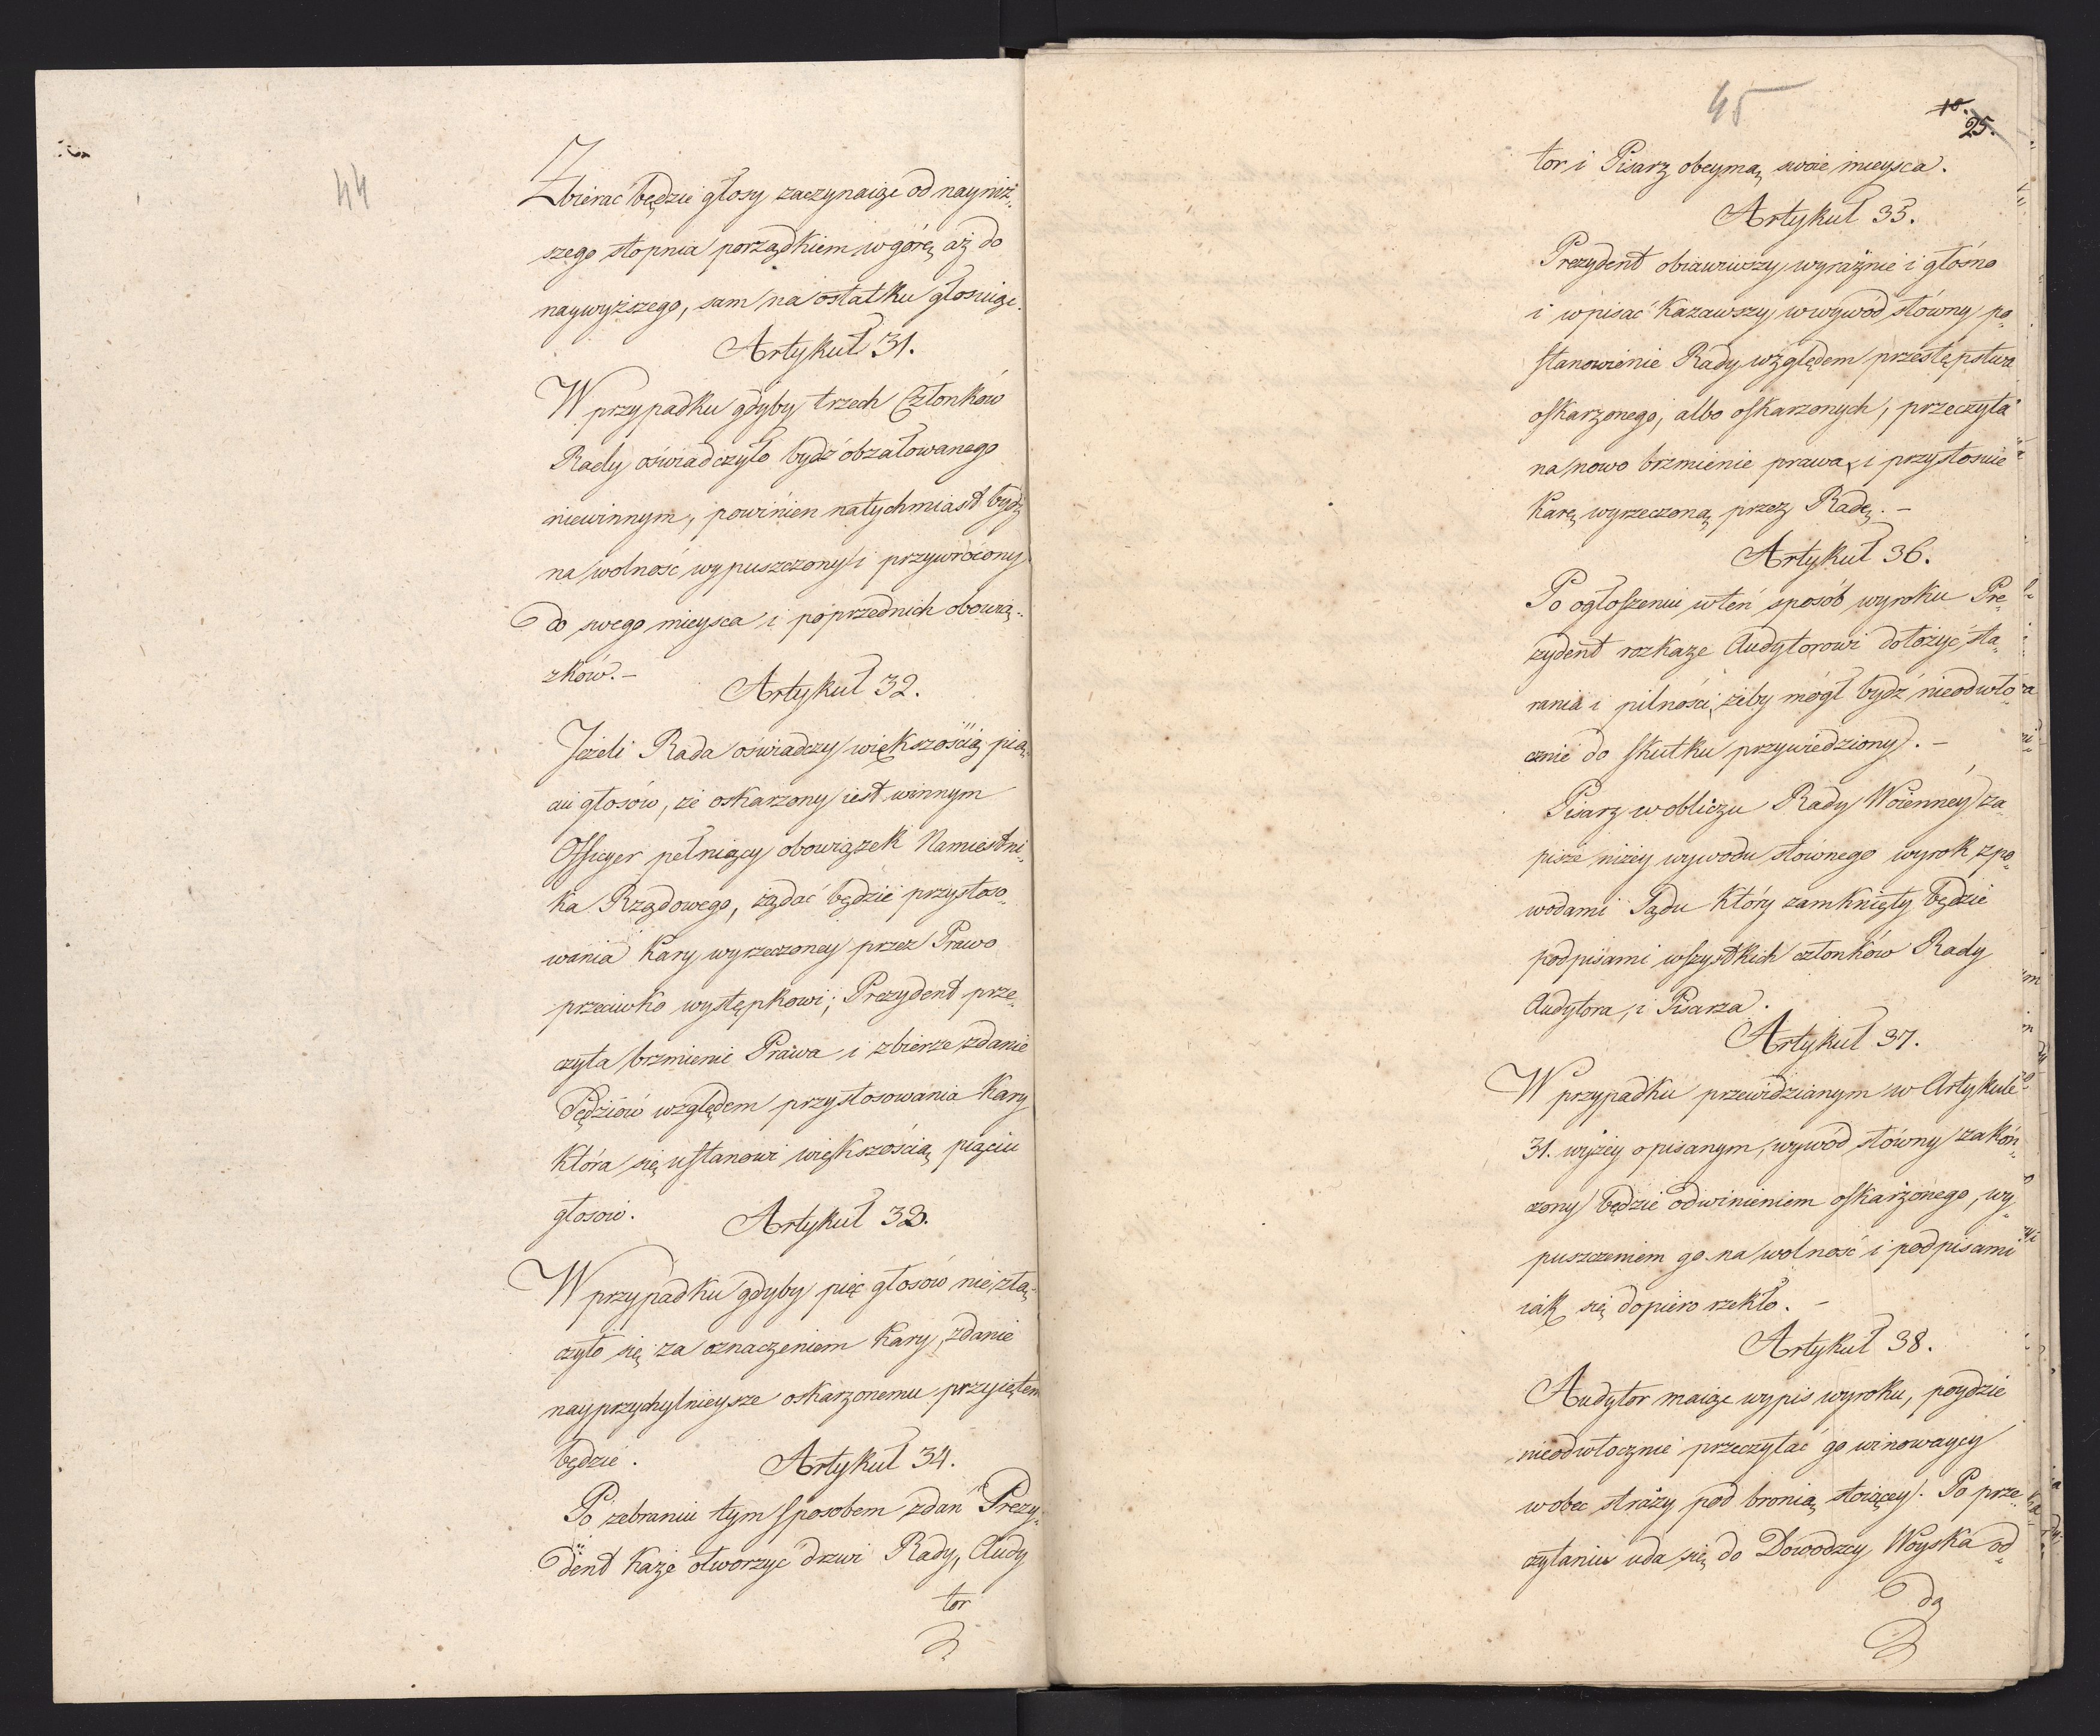 44
Zbierac będzie głosy zaczynaiąc od nayniż„
szego stopnia porządkiem w górę aż do
naywyższego, sam na ostatku głosuiąc.
Artykuł 31.
W przypadku gdyby trzech Członków
Rady oświadczyło bydź obżałowanego
niewinnym, powinien natychmiast bydź
na wolność wypuszczony i przywrócony
do swego mieysca i poprzednich obowią„
zków. –
Artykuł 32.
Jeżeli Rada oświadczy większością pię„
ciu głosów, że oskarzony iest winnym
Officyer pełniący obowiązek Namiestni„
ka Rządowego, żądać będzie przystoso„
wania Kary wyrzeczoney przez Prawo
przeciwko występkowi; Prezydent prze„
czyta brzmienie Prawa i zbierze zdanie
Sędziów względem przystosowania Kary
która się ustanowi większością pięciu
głosow.
Artykuł 33.
W przypadku gdyby pięc głosów nie złą„
czyło się za oznaczeniem Kary, zdanie
nayprzychylnieysze oskarzonemu przyiętem
będzie.
Artykuł 34.
Po zebraniu tym sposobem zdań Prezy„
dent Każe otworzyć drzwi Rady, Audy
tor
45
10.
25.
tor i Pisarz obeymą swoie mieysca.
Artykuł 35.
Prezydent obiawiwszy wyraźnie i głośno
i wpisać Kazawszy w wywód słówny po„
stanowienie Rady względem przestępstwa
oskarzonego, albo oskarzonych, przeczyta
na nowo brzmienie prawa, i przystosuie
Karę wyrzeczoną przez Radę. –
Artykuł 36.
Po ogłoszeniu w ten sposób wyroku Pre„
zydent rozkaże Audytorowi dołożyć sta„
rania i pilności, żeby mógł bydź nieodwło„
cznie do skutku przywiedziony. –
Pisarz w obliczu Rady Woienney za„
pisze niżey wywodu słownego wyrok z po„
wodami Sądu który zamknięty będzie
podpisami wszystkich członków Rady
Audytora, i Pisarza.
Artykuł 37.
W przypadku przewidzianym w Artykule
31. wyżey opisanym, wywód słówny zakoń„
czony będzie odwinieniem oskarżonego, wy„
puszczeniem go na wolność i podpisami
iak się dopiero rzekło. –
Artykuł 38.
Audytor maiąc wypis wyroku, poydzie
nieodwłocznie przeczytać go winowaycy
wobec straży pod bronią stoiącey. Po prze„
czytaniu uda się do Dowodzcy Woyska od„
da